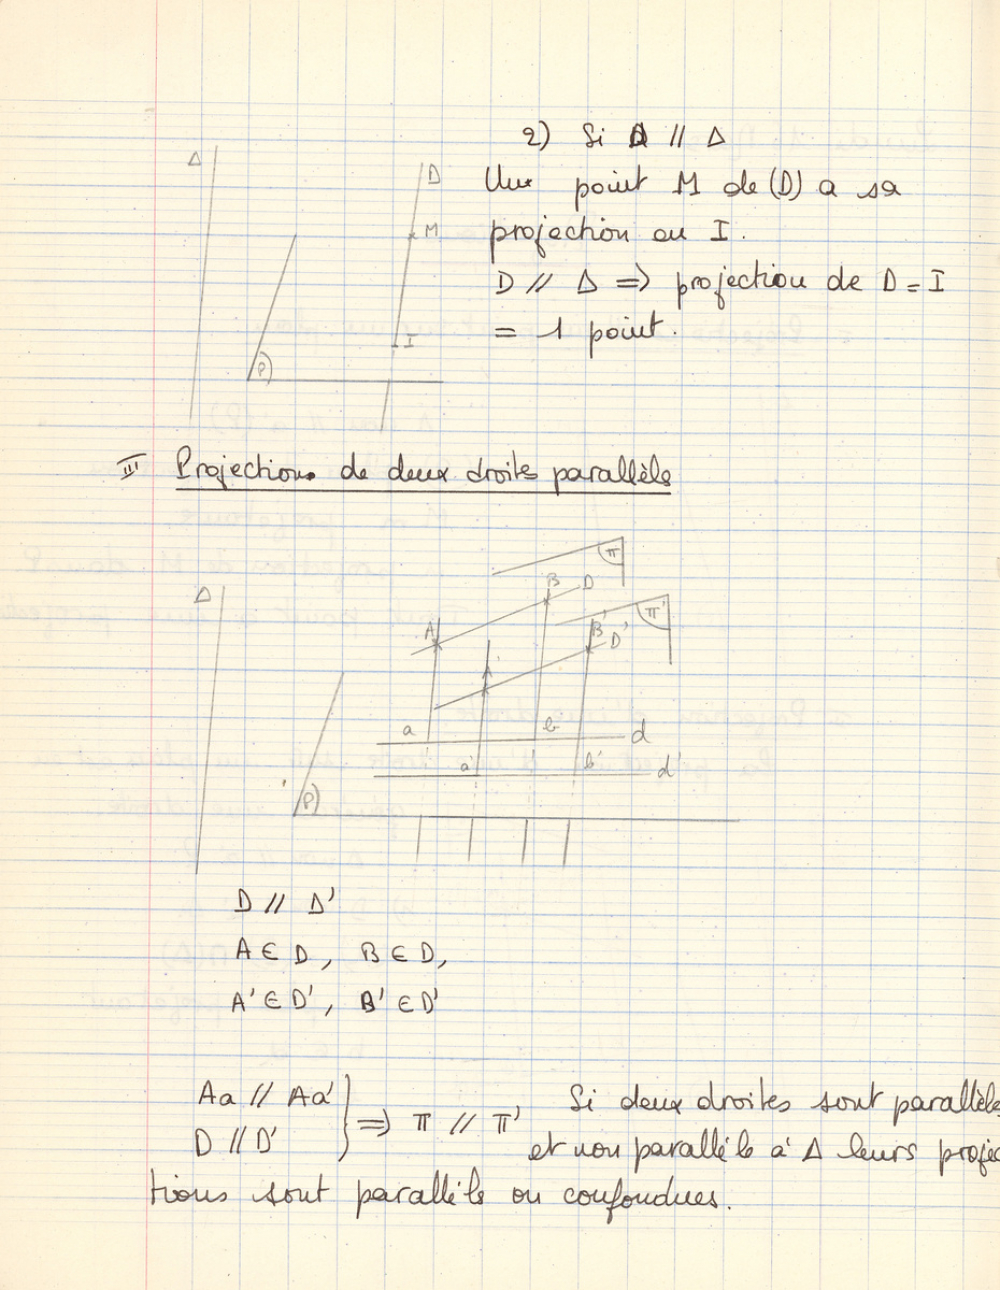 2) Si D // Δ
Δ
D
Un point M de (D) a sa
M
projection en I.
D // Δ => projection de D = I
= 1 point.
I
P)
III Projections de deux droites parallèle
π
Δ
B D
π'
A
B'
D'
A'
a
b
d
a'
b'
d'
P)
D // D'
A ∈ D, B ∈ D,
A' ∈ D', B' ∈ D'
Aa // Aa' } => π // π' Si deux droites sont parallèles
D // D' et non parallèle à Δ leurs projec
tions sont parallèle ou confondues.